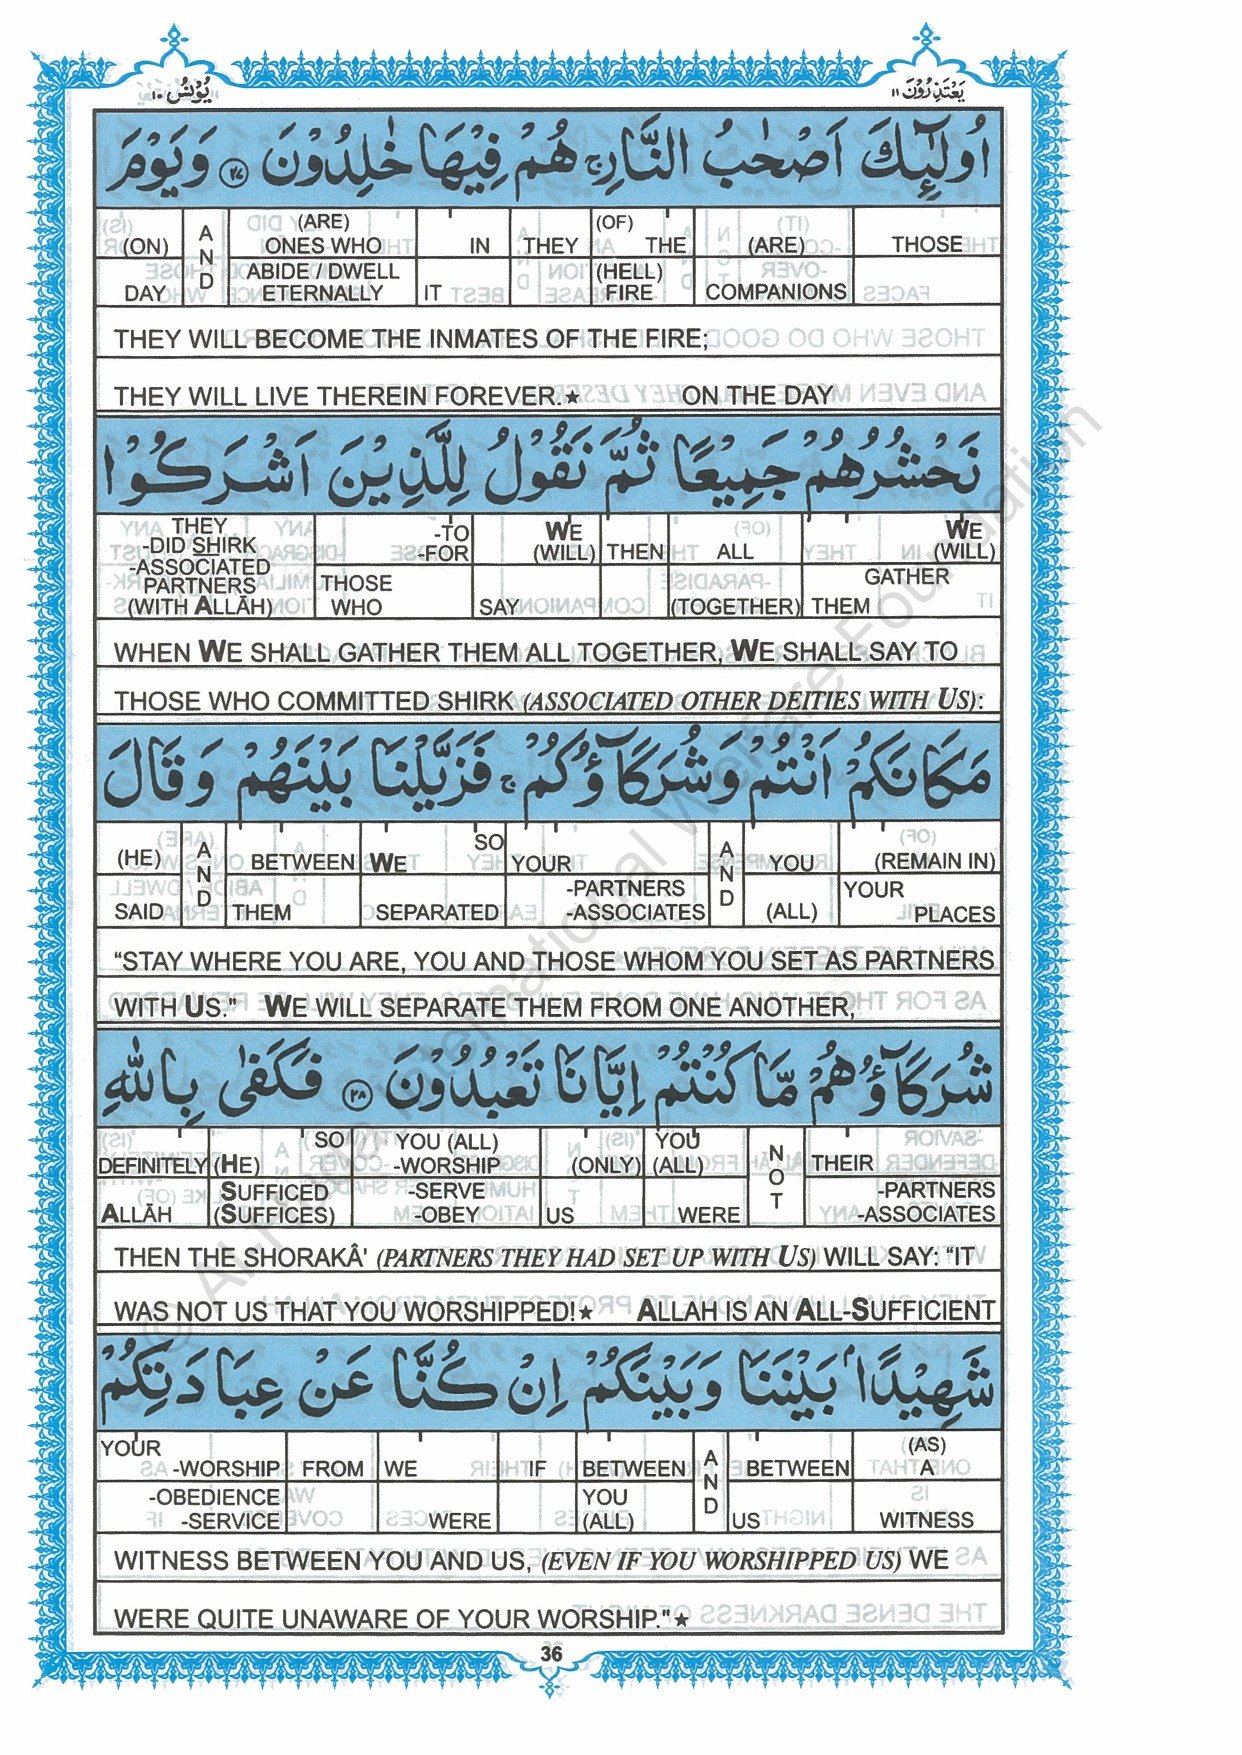 يَعْتَذِرُوْنَ ١١
يُوْنُس ١٠
اُولٰٓئِكَ اَصْحٰبُ النَّارِ ۚ هُمْ فِيْهَا خٰلِدُوْنَ ﴿٢٧﴾ وَيَوْمَ
(ON) DAY | AND | (ARE) ONES WHO ABIDE / DWELL ETERNALLY | IN IT | THEY | (OF) THE (HELL) FIRE | (ARE) COMPANIONS | THOSE
THEY WILL BECOME THE INMATES OF THE FIRE;
THEY WILL LIVE THEREIN FOREVER.★ ON THE DAY
نَحْشُرُهُمْ جَمِيْعًا ثُمَّ نَقُوْلُ لِلَّذِيْنَ اَشْرَكُوْا
THEY -DID SHIRK -ASSOCIATED PARTNERS (WITH ALLĀH) | -TO -FOR THOSE WHO | WE (WILL) SAY | THEN | ALL (TOGETHER) | WE (WILL) GATHER THEM
WHEN WE SHALL GATHER THEM ALL TOGETHER, WE SHALL SAY TO
THOSE WHO COMMITTED SHIRK (ASSOCIATED OTHER DEITIES WITH US):
مَكَانَكُمْ اَنْتُمْ وَشُرَكَآؤُكُمْ ۚ فَزَيَّلْنَا بَيْنَهُمْ وَقَالَ
(HE) SAID | AND | BETWEEN THEM | SO WE SEPARATED | YOUR -PARTNERS -ASSOCIATES | AND | YOU (ALL) | (REMAIN IN) YOUR PLACES
“STAY WHERE YOU ARE, YOU AND THOSE WHOM YOU SET AS PARTNERS
WITH US." WE WILL SEPARATE THEM FROM ONE ANOTHER,
شُرَكَآؤُهُمْ مَّا كُنْتُمْ اِيَّانَا تَعْبُدُوْنَ ﴿٢٨﴾ فَكَفٰى بِاللّٰهِ
DEFINITELY ALLĀH | SO (HE) SUFFICED (SUFFICES) | YOU (ALL) -WORSHIP -SERVE -OBEY | (ONLY) US | YOU (ALL) WERE | NOT | THEIR -PARTNERS -ASSOCIATES
THEN THE SHORAKÂ' (PARTNERS THEY HAD SET UP WITH US) WILL SAY: “IT
WAS NOT US THAT YOU WORSHIPPED!★ ALLAH IS AN ALL-SUFFICIENT
شَهِيْدًاۢ بَيْنَنَا وَبَيْنَكُمْ اِنْ كُنَّا عَنْ عِبَادَتِكُمْ
YOUR -WORSHIP -OBEDIENCE -SERVICE | FROM | WE WERE | IF | BETWEEN YOU (ALL) | AND | BETWEEN US | (AS) A WITNESS
WITNESS BETWEEN YOU AND US, (EVEN IF YOU WORSHIPPED US) WE
WERE QUITE UNAWARE OF YOUR WORSHIP."★
36